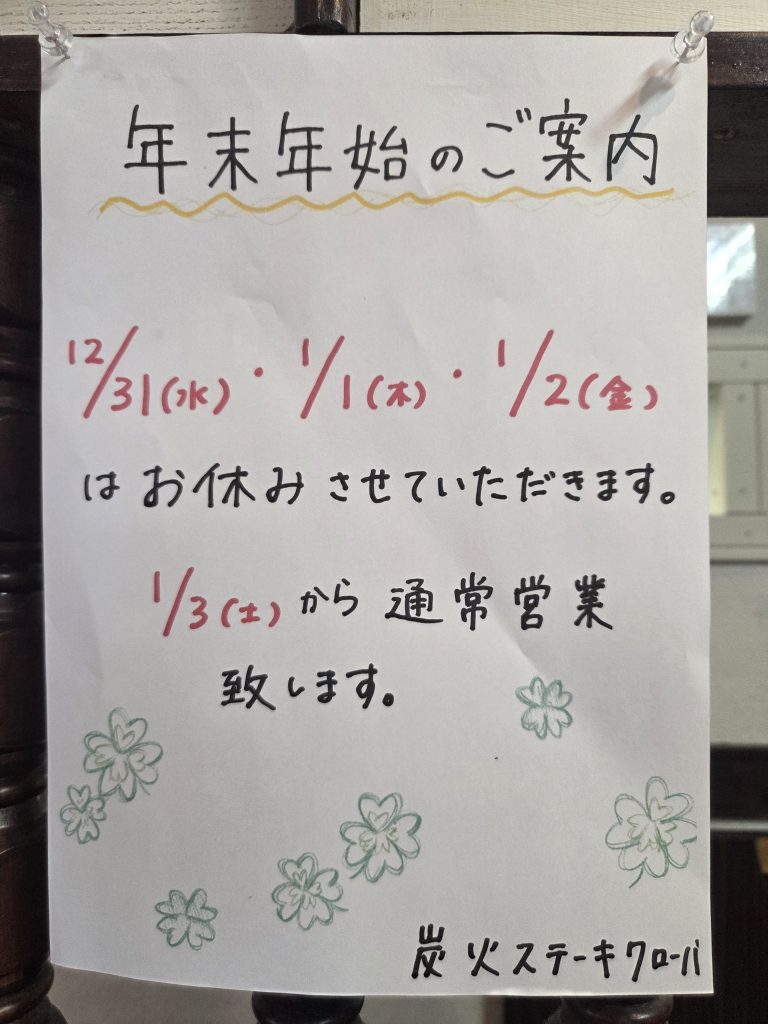 年末年始のご案内
12/31(水)・1/1(木)・1/2(金)
はお休みさせていただきます。
1/3(土)から通常営業
致します。
炭火ステーキクローバ